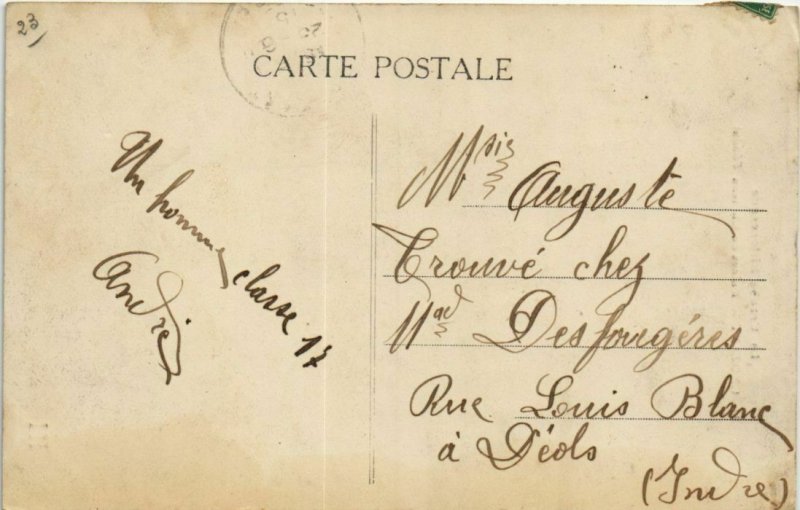 23
CARTE POSTALE
Un homme classe 17
André
Msie Auguste
Trouvé chez
Mad Desfougéres
Rue Louis Blanc
à Déols
(Indre)